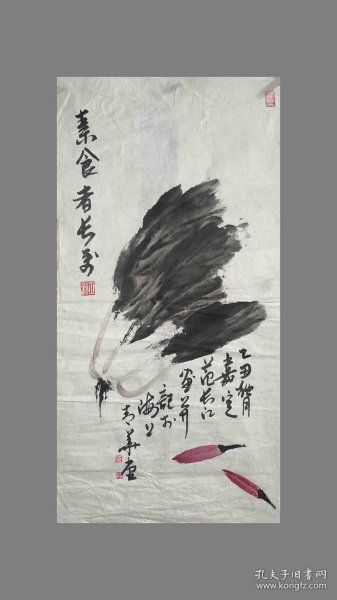 素食者长寿
乙丑
嘉定
范长江
画并
记于
海上
華堂
孔夫子旧书网
www.kongfz.com